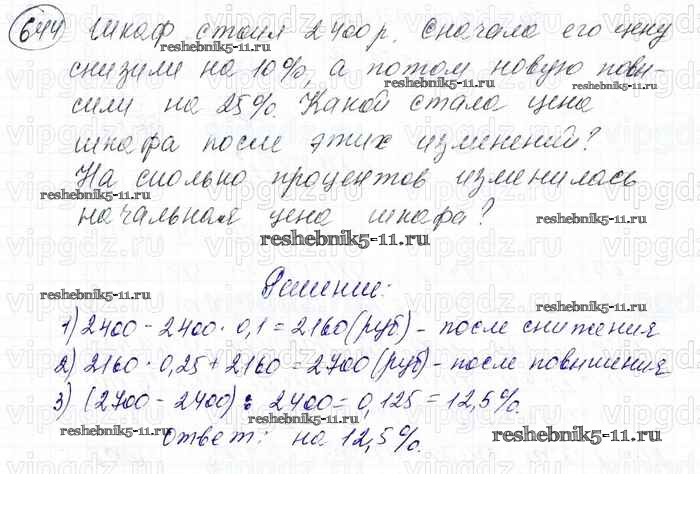 644 Шкаф стоил 2400р. Сначала его цену
снизили на 10%, а потом новую повы-
сили на 25%. Какой стала цена
шкафа после этих изменений?
На сколько процентов изменилась
начальная цена шкафа?
Решение:
1) 2400 - 2400 · 0,1 = 2160 (руб) - после снижения
2) 2160 · 0,25 + 2160 = 2700 (руб) - после повышения
3) (2700 - 2400) : 2400 = 0,125 = 12,5%.
Ответ: на 12,5%.
reshebnik5-11.ru
vipgdz.ru